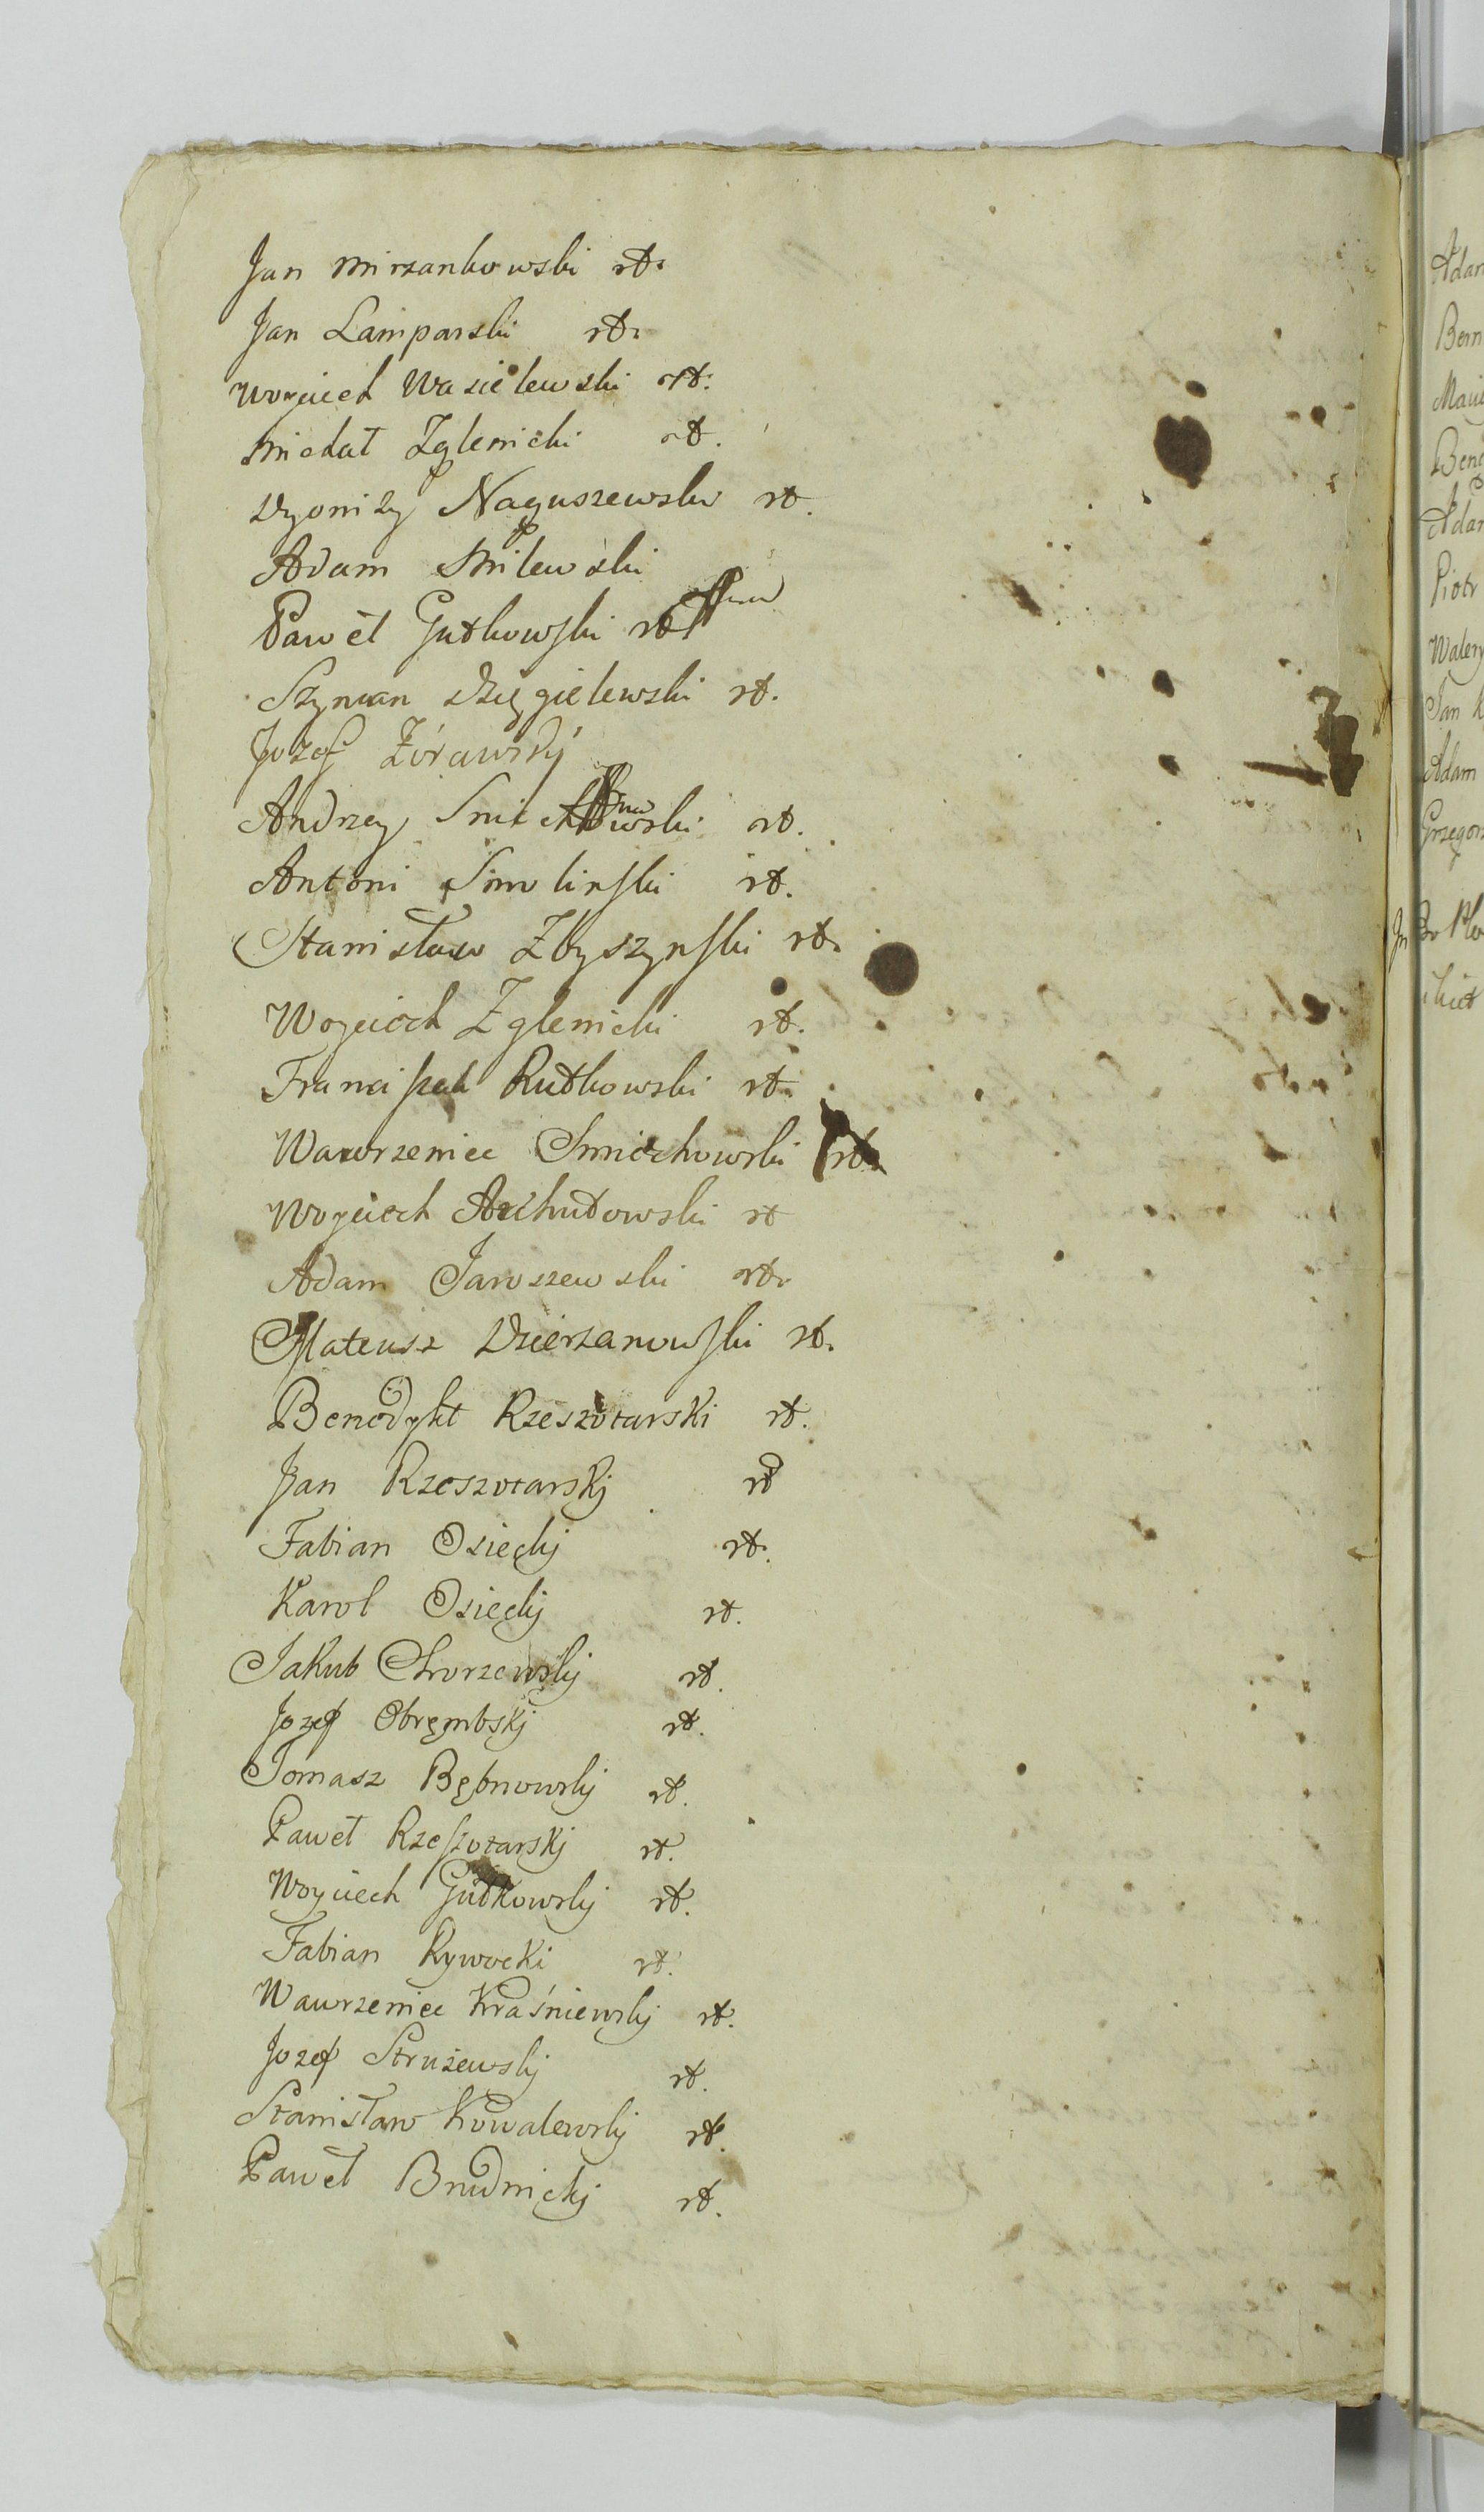 Jan Mirzankowski rt.
Jan Lamparski rt.
Woyciech Wasielewski rt.
Michał Zglenicki rt.
Dyonizy Naguszewski rt.
Adam Milewski
Paweł Gutkowski rt
Szyman Dzięgielewski rt.
Jozef Żórawskj
Andrzey Smiechowski rt.
Antoni Smolinski rt.
Stanisław Zbyszynski rt.
Woyciech Zglenicki rt.
Franciszek Rutkowski rt.
Wawrzeniec Smiechowski rt.
Woyciech Archutowski rt
Adam Jaroszewski rt.
Mateusz Dzierzanowski rt.
Benedykt Rzeszotarski rt.
Jan Rzeszotarskj rt
Fabian Osieckj rt.
Karol Osieckj rt.
Jakub Chorzewskj rt.
Jozef Obrembskj rt.
Tomasz Bębnowskj rt.
Paweł Rzeszotarskj rt.
Woyciech Gutkowskj rt.
Fabian Rywocki rt.
Wawrzeniec Kraśniewskj rt.
Jozef Strużewskj rt.
Stanisław Kowalewskj rt.
Paweł Brudnickj rt.
Adam
Piotr
Jan
Adam